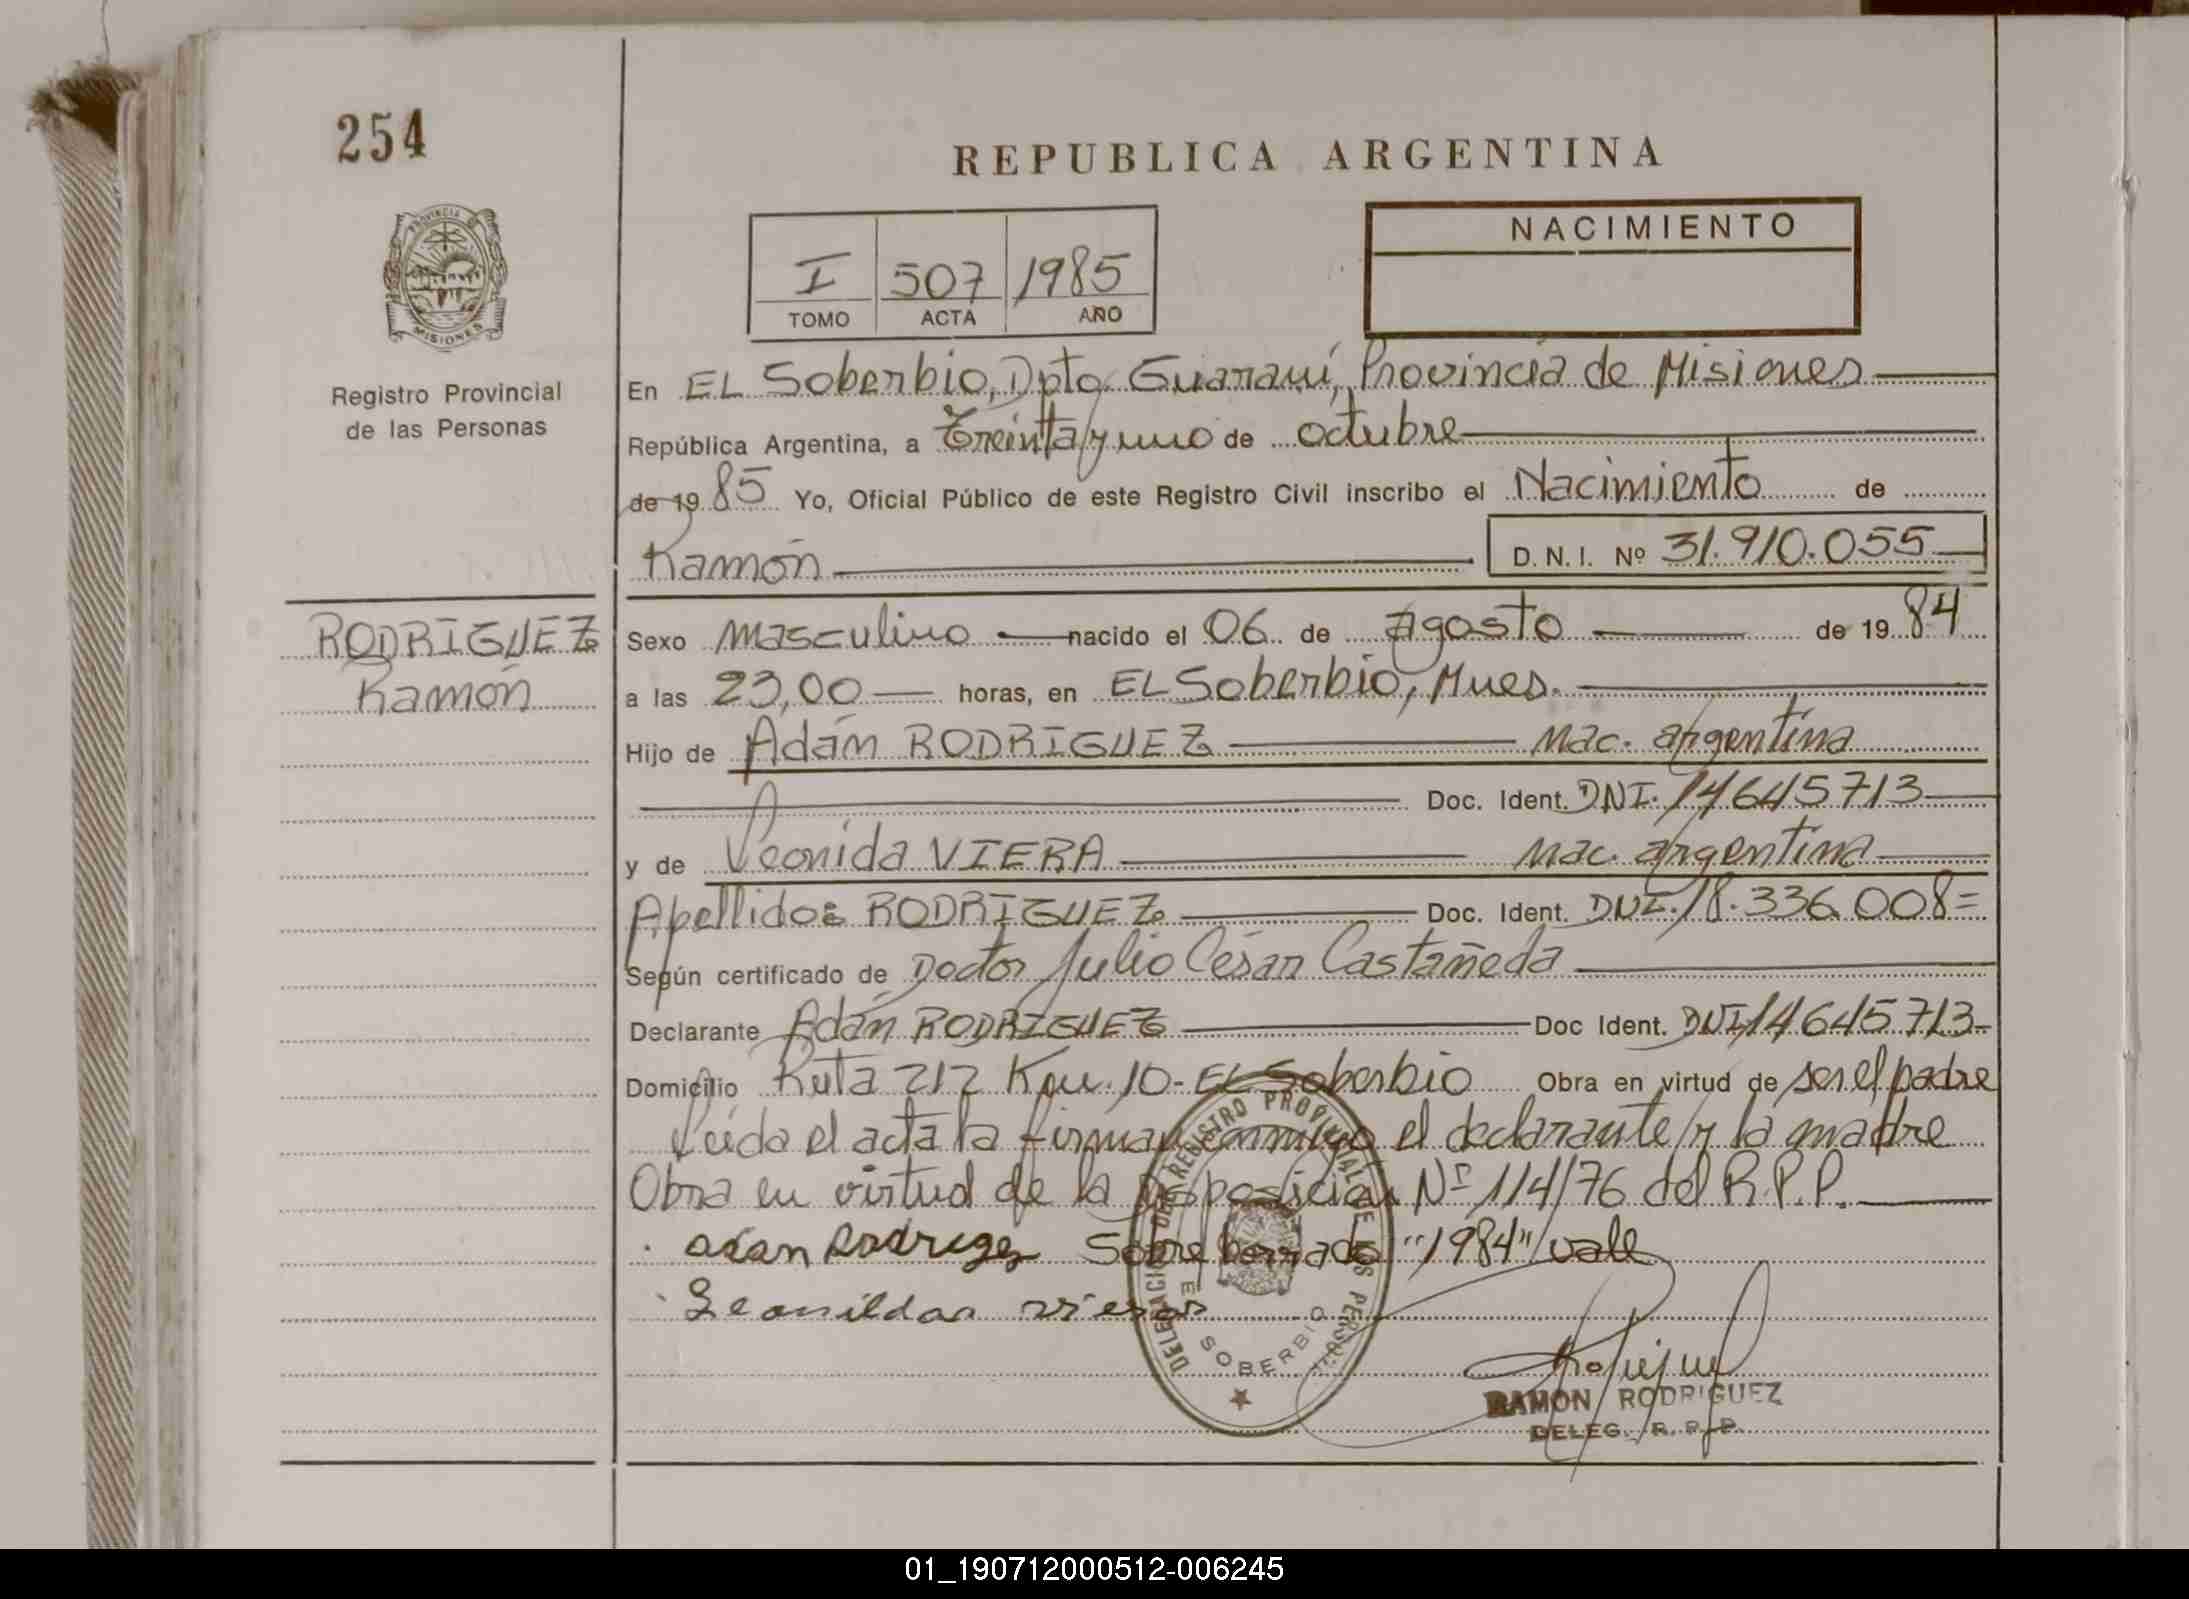 254
REPUBLICA ARGENTINA
NACIMIENTO
I 507 1985
TOMO ACTA AÑO
PROVINCIA DE
MISIONES
Registro Provincial
de las Personas
En EL Soberbio, Dpto. Guaraní, Provincia de Misiones
República Argentina, a Treinta y uno de octubre
de 19 85 Yo, Oficial Público de este Registro Civil inscribo el Nacimiento de
Ramón D.N.I. Nº 31.910.055
RODRIGUEZ
Ramón
Sexo masculino nacido el 06 de Agosto de 19 84
a las 23,00 horas, en EL Soberbio, Mnes.
Hijo de Adán RODRIGUEZ nac. argentina
Doc. Ident. DNI. 14645713
y de Leonida VIERA nac. argentina
Apellido: RODRIGUEZ Doc. Ident. DNI. 18.336.008=
Según certificado de Doctor Julio César Castañeda
Declarante Adán RODRIGUEZ Doc Ident. DNI 14645713
Domicilio Ruta 212 Km. 10- EL Soberbio Obra en virtud de ser el padre
Leída el acta la firman conmigo el declarante y la madre
Obra en virtud de la Disposición Nº 114/76 del R.P.P.
adan Rodrigez Sobre borrado "1984" vale
Leonildar viera
DELEGACION DEL REGISTRO PROVINCIAL DE LAS PERSONAS
EL SOBERBIO
RAMON RODRIGUEZ
DELEG. R. P. P.
01_190712000512-006245